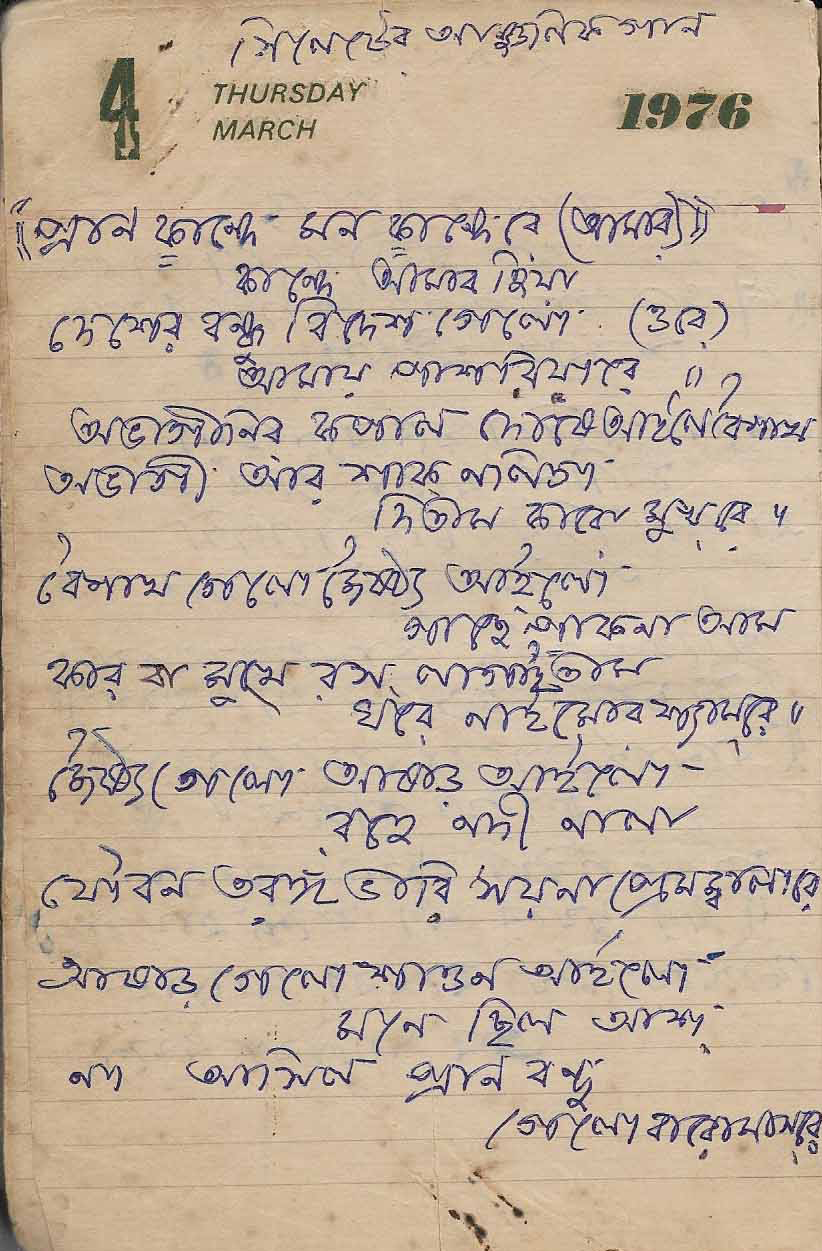 সিলেটের আধুনিক গান
4
THURSDAY
MARCH
1976
"প্রান কান্দে মন কান্দে রে (আমার)"
কান্দে আমার হিয়া
দেশের বন্ধু বিদেশ গেলো (ওরে)
আমায় পাশরিয়ারে "
অভাগীনির কপাল দোষে আইলে বৈশাখ
অভাগী আর শাক নালিতা
দিতাম কারো মুখ রে "
বৈশাখ গেলো জৈষ্ঠ্য আইলো
গাছে পাকনা আম
কার বা মুখে রস লাগাইতাম
ঘরে নাই মোর শ্যামরে "
জৈষ্ঠ্য গেলো আষাঢ় আইলো
বহে নদী নালা
যৌবন তরঙ্গ ভারি সয়না প্রেমজ্বালারে
আষাঢ় গেলো শাওন আইলো
মনে ছিল আশা
না আসিল প্রান বন্ধু
গেলো বারোমাসরে